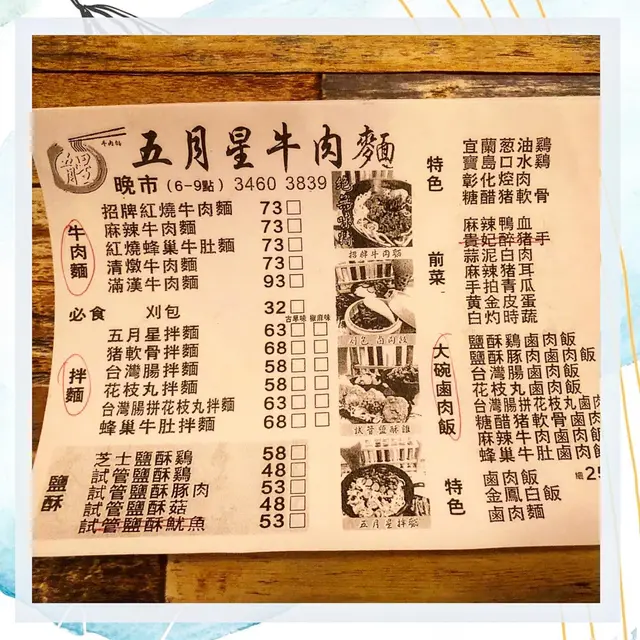 五月星牛肉麵
晚市 (6-9點) 3460 3839
牛肉麵
招牌紅燒牛肉麵 73
麻辣牛肉麵 73
紅燒蜂巢牛肚麵 73
清燉牛肉麵 73
滿漢牛肉麵 93
必食 刈包 32
古早味 椒麻味
拌麵
五月星拌麵 63
豬軟骨拌麵 68
台灣腸拌麵 58
花枝丸拌麵 58
台灣腸拼花枝丸拌麵 63
蜂巢牛肚拌麵 68
鹽酥
芝士鹽酥鷄 58
試管鹽酥鷄 48
試管鹽酥豚肉 53
試管鹽酥菇 48
試管鹽酥魷魚 53
招牌牛肉麵
五月星拌麵
特色
宜蘭葱油鷄
寶島口水鷄
彰化焢肉
糖醋豬軟骨
前菜
麻辣鴨血
貴妃醉豬手
蒜泥白肉
麻辣豬耳
手拍青瓜
黄金皮蛋
白灼時蔬
大碗鹵肉飯
鹽酥鷄鹵肉飯
鹽酥豚肉鹵肉飯
台灣腸鹵肉飯
花枝丸鹵肉飯
台灣腸拼花枝丸鹵肉
糖醋豬軟骨鹵肉
麻辣牛肉鹵肉飯
蜂巢牛肚鹵肉飯
特色
鹵肉飯 細
金鳳白飯
鹵肉麵